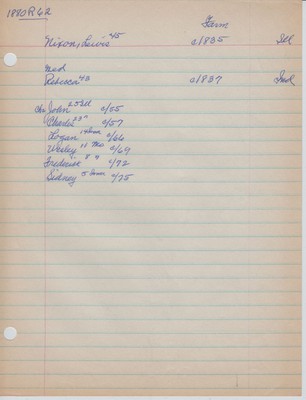 1880 R62
Farm
Nixon, Lewis 45 c/1835 Ill
md
Rebecca 43 c/1837 Ind
ch: John 25 Ill c/55
Charles 23 " c/57
Logan 14 c/66
Wesley 11 Mo c/69
Frederick 8 " c/72
Sidney 5 c/75